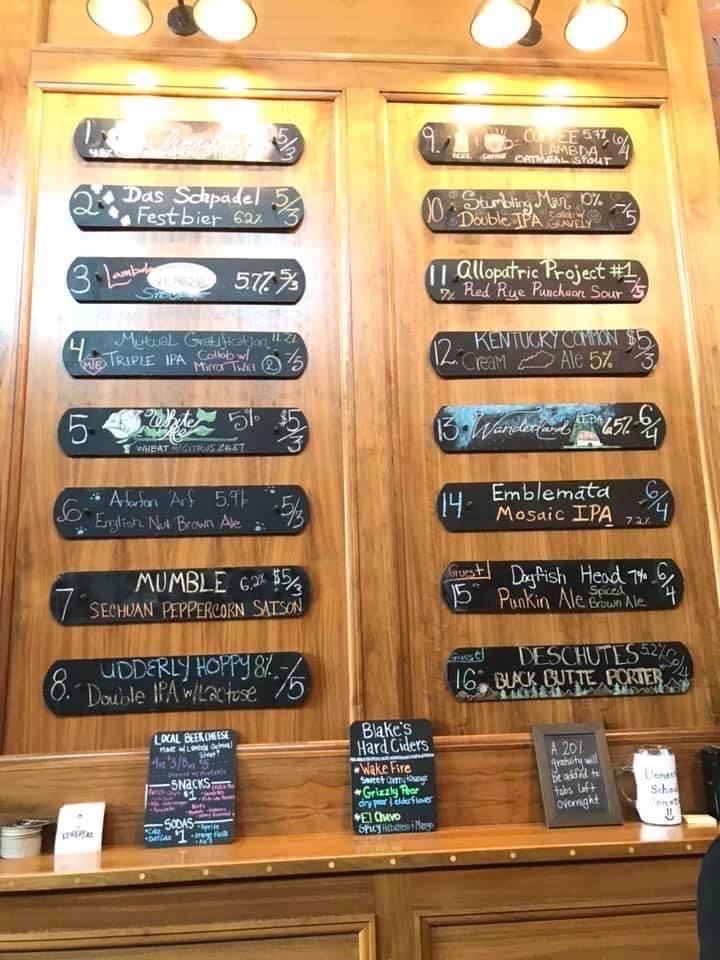 1
4.8%
5/3
2 Das Schpadel 5/3
Festbier 6.2%
3 Lambda 5.7% 5/3
OATMEAL
Stout
4 Mutual Gratification 11.2%
TRIPLE IPA Collab w/ -/5
Mirror Twin 2
MTB
5 White 5% $5/3
Ale
WHEAT w/CITRUS ZEST
6 Arfarfan 'Arf 5.9% 5/3
English Nut Brown Ale
7 MUMBLE 6.2% $5/3
SECHUAN PEPPERCORN SAISON
8. UDDERLY HOPPY 8% -/5
Double IPA w/Lactose
9. COFFEE 5.7% 6/4
BEER COFFEE = LAMBDA
OATMEAL STOUT
10 Stumbling Man 10% -/5
Double IPA Collab w/
GRAVELY
11 Allopatric Project #1
7% Red Rye Puncheon Sour -/5
12. KENTUCKY COMMON $5/3
Cream Ale 5%
13 Wanderland IPA 6.5% 6/4
14 Emblemata 6/4
Mosaic IPA 7.2%
Guest Dogfish Head 7% 6/4
15 Punkin Ale Spiced
Brown Ale
Guest DESCHUTES 5.2% 6/4
16 BLACK BUTTE PORTER
LOCAL BEER CHEESE
Made w/ Lambda Oatmeal
Stout
4oz $3/8oz $5
Served w/ Pretzels
SNACKS
$1
SODAS
$1
• Coke
• Diet Coke
• Sprite
• Orange Fanta
• Ale 8
Blake's
Hard Ciders
*Wake Fire
Sweet Cherry & Orange
*Grizzly Pear
dry pear & elderflower
*El Chavo
Spicy Habanero & Mango
A 20%
gratuity will
be added to
tabs left
overnight